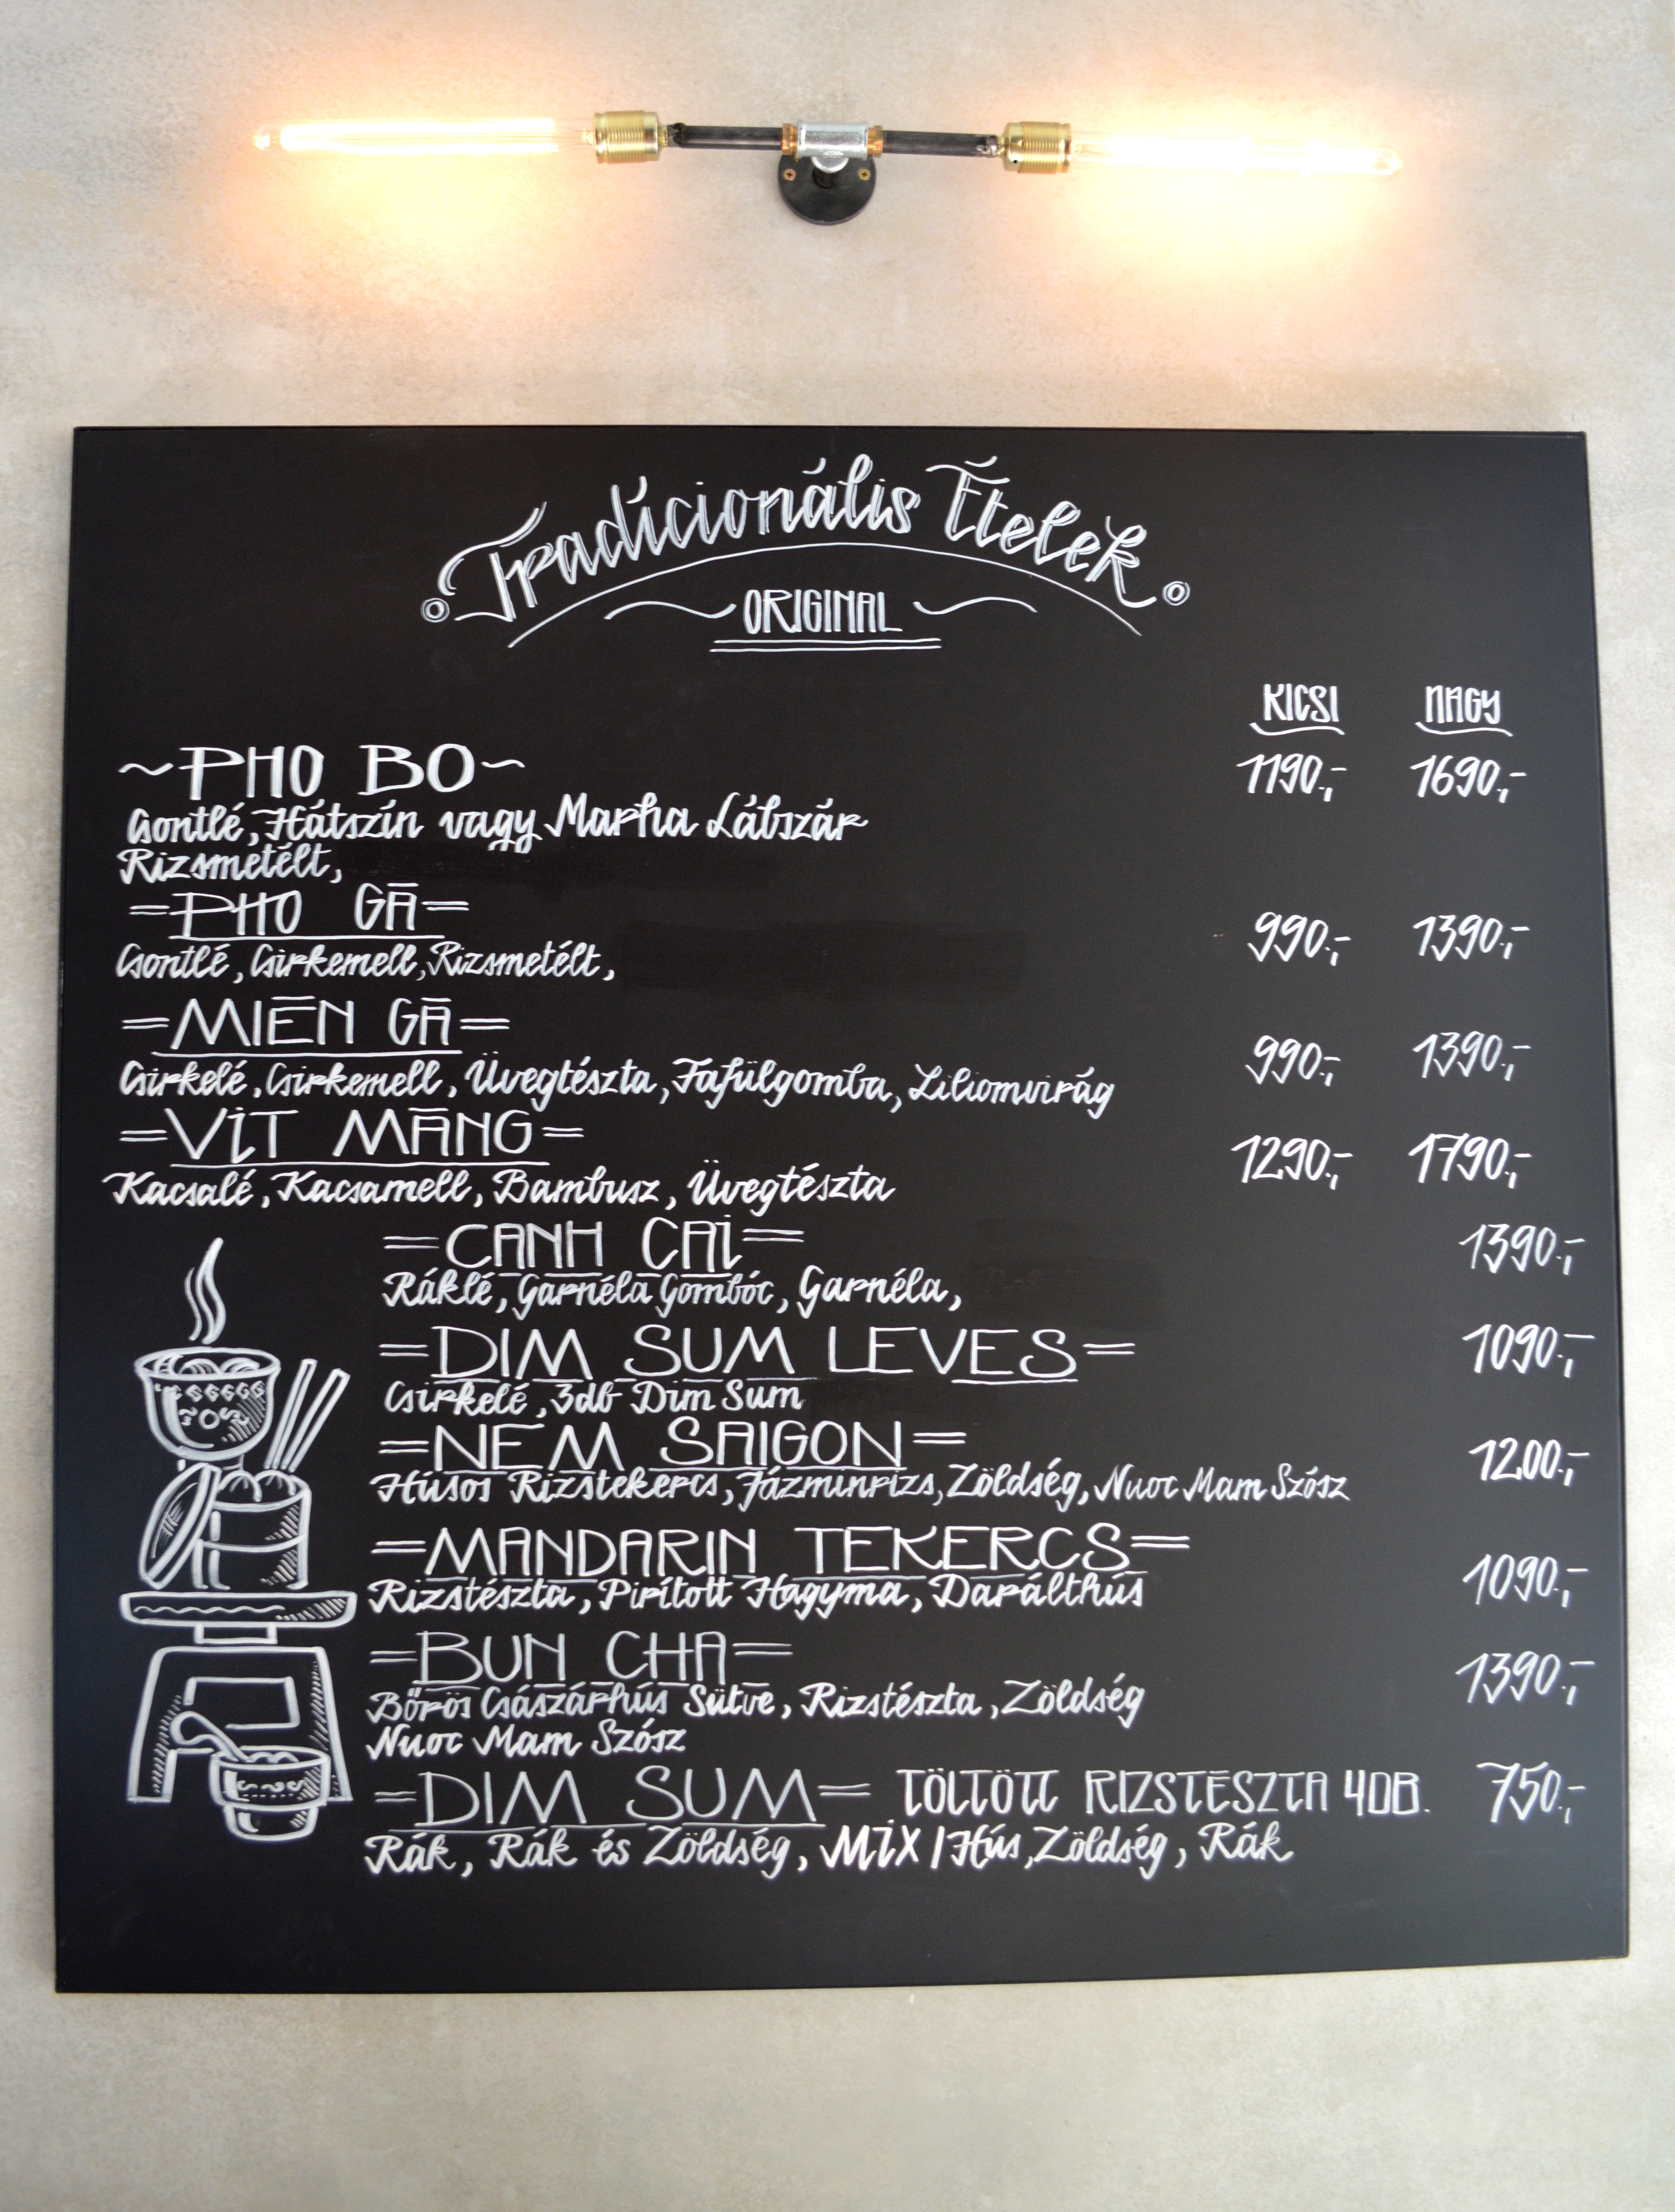 Tradicionális Ételek
ORIGINAL
KICSI NAGY
~PHO BO~ 1190.;- 1690.;-
Csontlé, Hátszín vagy Marha Lábszár
Rizsmetélt,
=PHO GĀ= 990.;- 1390.;-
Csontlé, Csirkemell, Rizsmetélt,
=MIĒN GĀ= 990.;- 1390.;-
Csirkelé, Csirkemell, Üvegtészta, Fafülgomba, Liliomvirág
=ViT MĀNG= 1290.;- 1790.;-
Kacsalé, Kacsamell, Bambusz, Üvegtészta
=CANH CAi= 1390.;-
Ráklé, Garnéla Gombóc, Garnéla,
=DIM SUM LEVES= 1090.;-
Csirkelé, 3db Dim Sum
=NEM SAIGON= 1200.;-
Húsos Rizstekercs, Jázminrizs, Zöldség, Nuoc Mam Szósz
=MANDARIN TEKERCS= 1090.;-
Rizstészta, Pirított Hagyma, Darálthús
=BUN CHA= 1390.;-
Bőrös Császárhús Sütve, Rizstészta, Zöldség
Nuoc Mam Szósz
=DIM SUM= TÖLTÖTT RIZSTÉSZTA 4DB. 750.;-
Rák, Rák és Zöldség, MiX / Hús, Zöldség, Rák